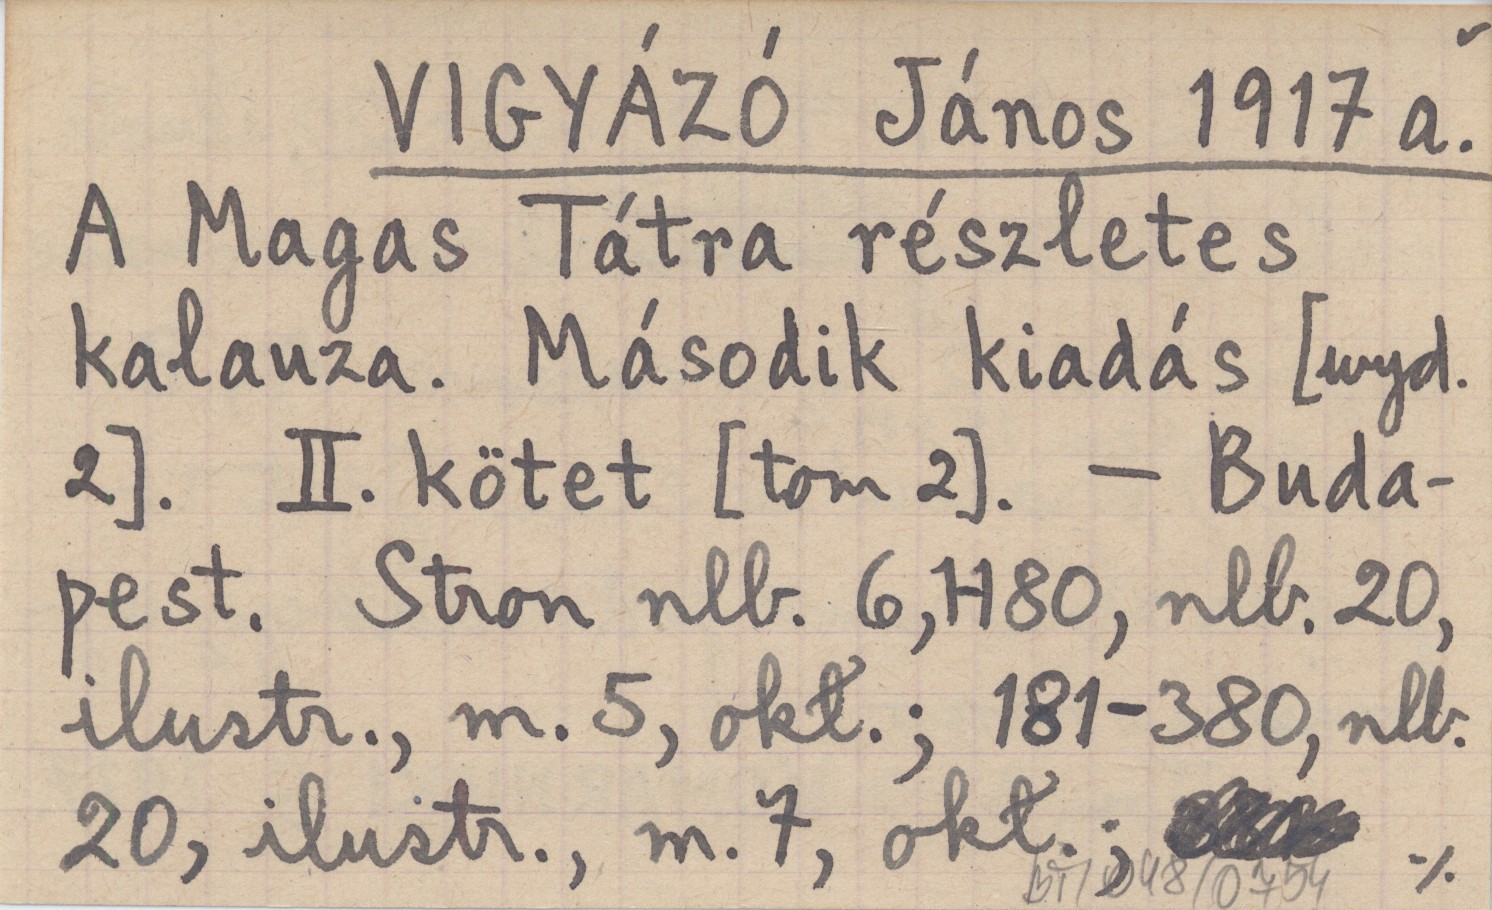 VIGYÁZÓ János 1917 a.
A Magas Tátra részletes
kalauza. Második kiadás [wyd.
2]. II. kötet [tom 2]. — Buda-
pest. Stron nlb. 6, 180, nlb. 20,
ilustr., m. 5, okł.; 181-380, nlb.
20, ilustr., m. 7, okł.;
BT/048/0754
·/.